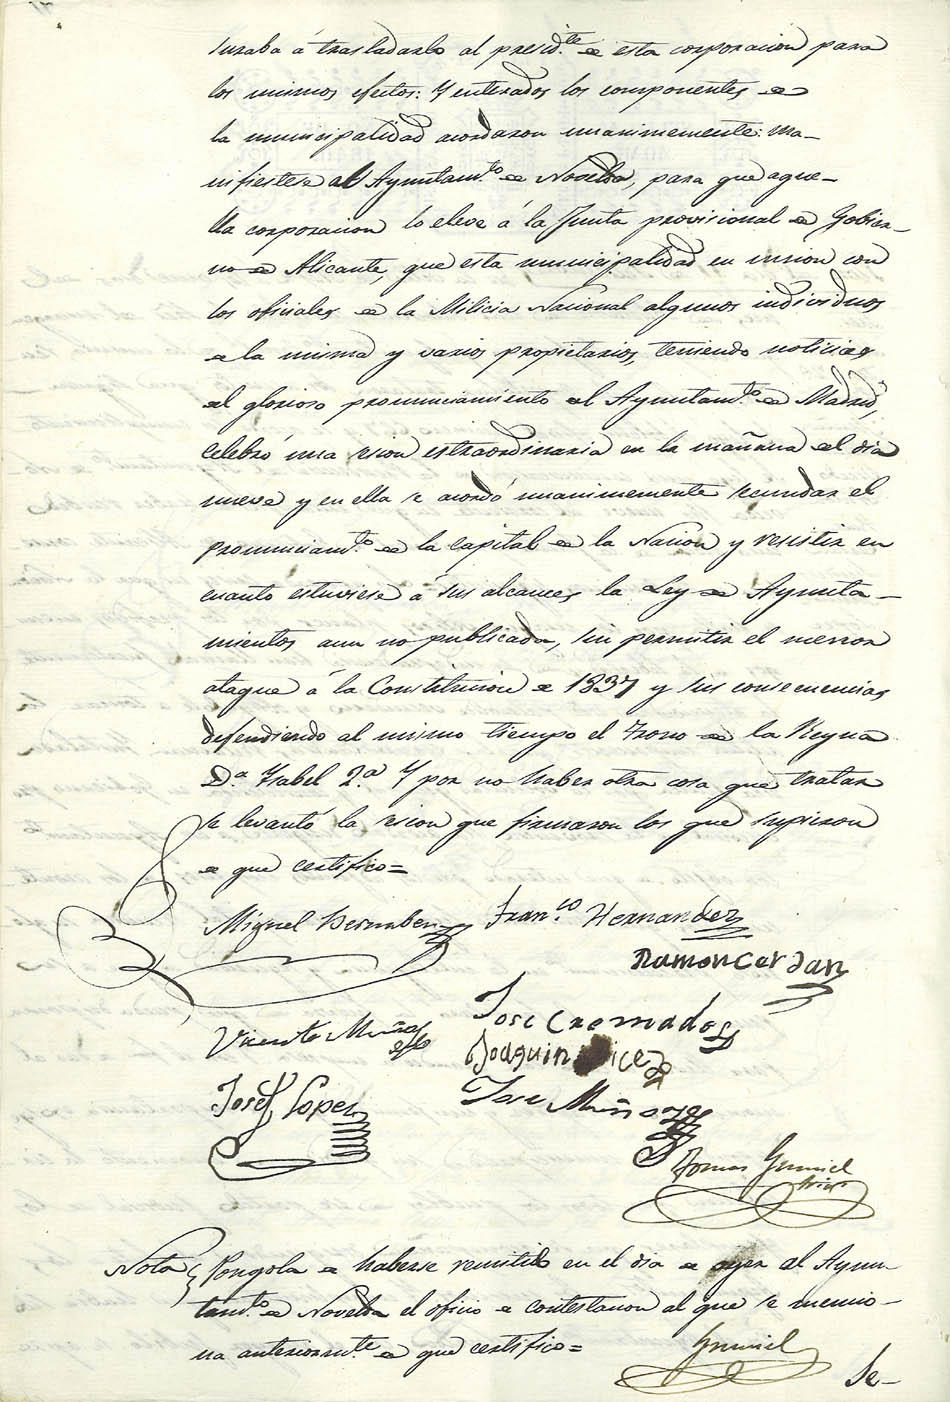 suraba á trasladarlo al presid.te de esta corporacion para
los mismos efectos: Y enterados los componentes de
la municipalidad acordaron unanimemente: Ma-
nifiestese al Ayuntam.to de Novelda, para que aque-
lla corporacion lo eleve á la Junta provisional de Gobier-
no de Alicante, que esta municipalidad en union con
los oficiales de la Milicia Nacional algunos individuos
de la misma y varios propietarios, teniendo noticias
del glorioso pronunciamiento del Ayuntam.to de Madrid,
celebró una sesion estraordinaria en la mañana del dia
nueve y en ella se acordó unanimemente secundar el
pronunciam.to de la capital de la Nacion y resistir en
cuanto estuviese á sus alcances la Ley de Ayunta-
mientos aun no publicada, sin permitir el menor
ataque á la Constitucion de 1837 y sus consecuencias
defendiendo al mismo tiempo el Trono de la Reyna
D.a Ysabel 2.a Y por no haber otra cosa que tratar
se levantó la sesion que firmaron los que supieron
de que certifico=
Miguel Bernabeu Fran.co Hernandez
Ramon Cerdan
Vicente Muñoz Jose Cremades
Joaquin
Josef Lopez Jose Muñoz
Tomas Gumiel
Srio
Nota Pongola de haberse remitido en el dia de ayer al Ayun-
tam.to de Novelda el oficio de contestacion al que se mencio-
na anteriorm.te de que certifico=
Gumiel
Se-